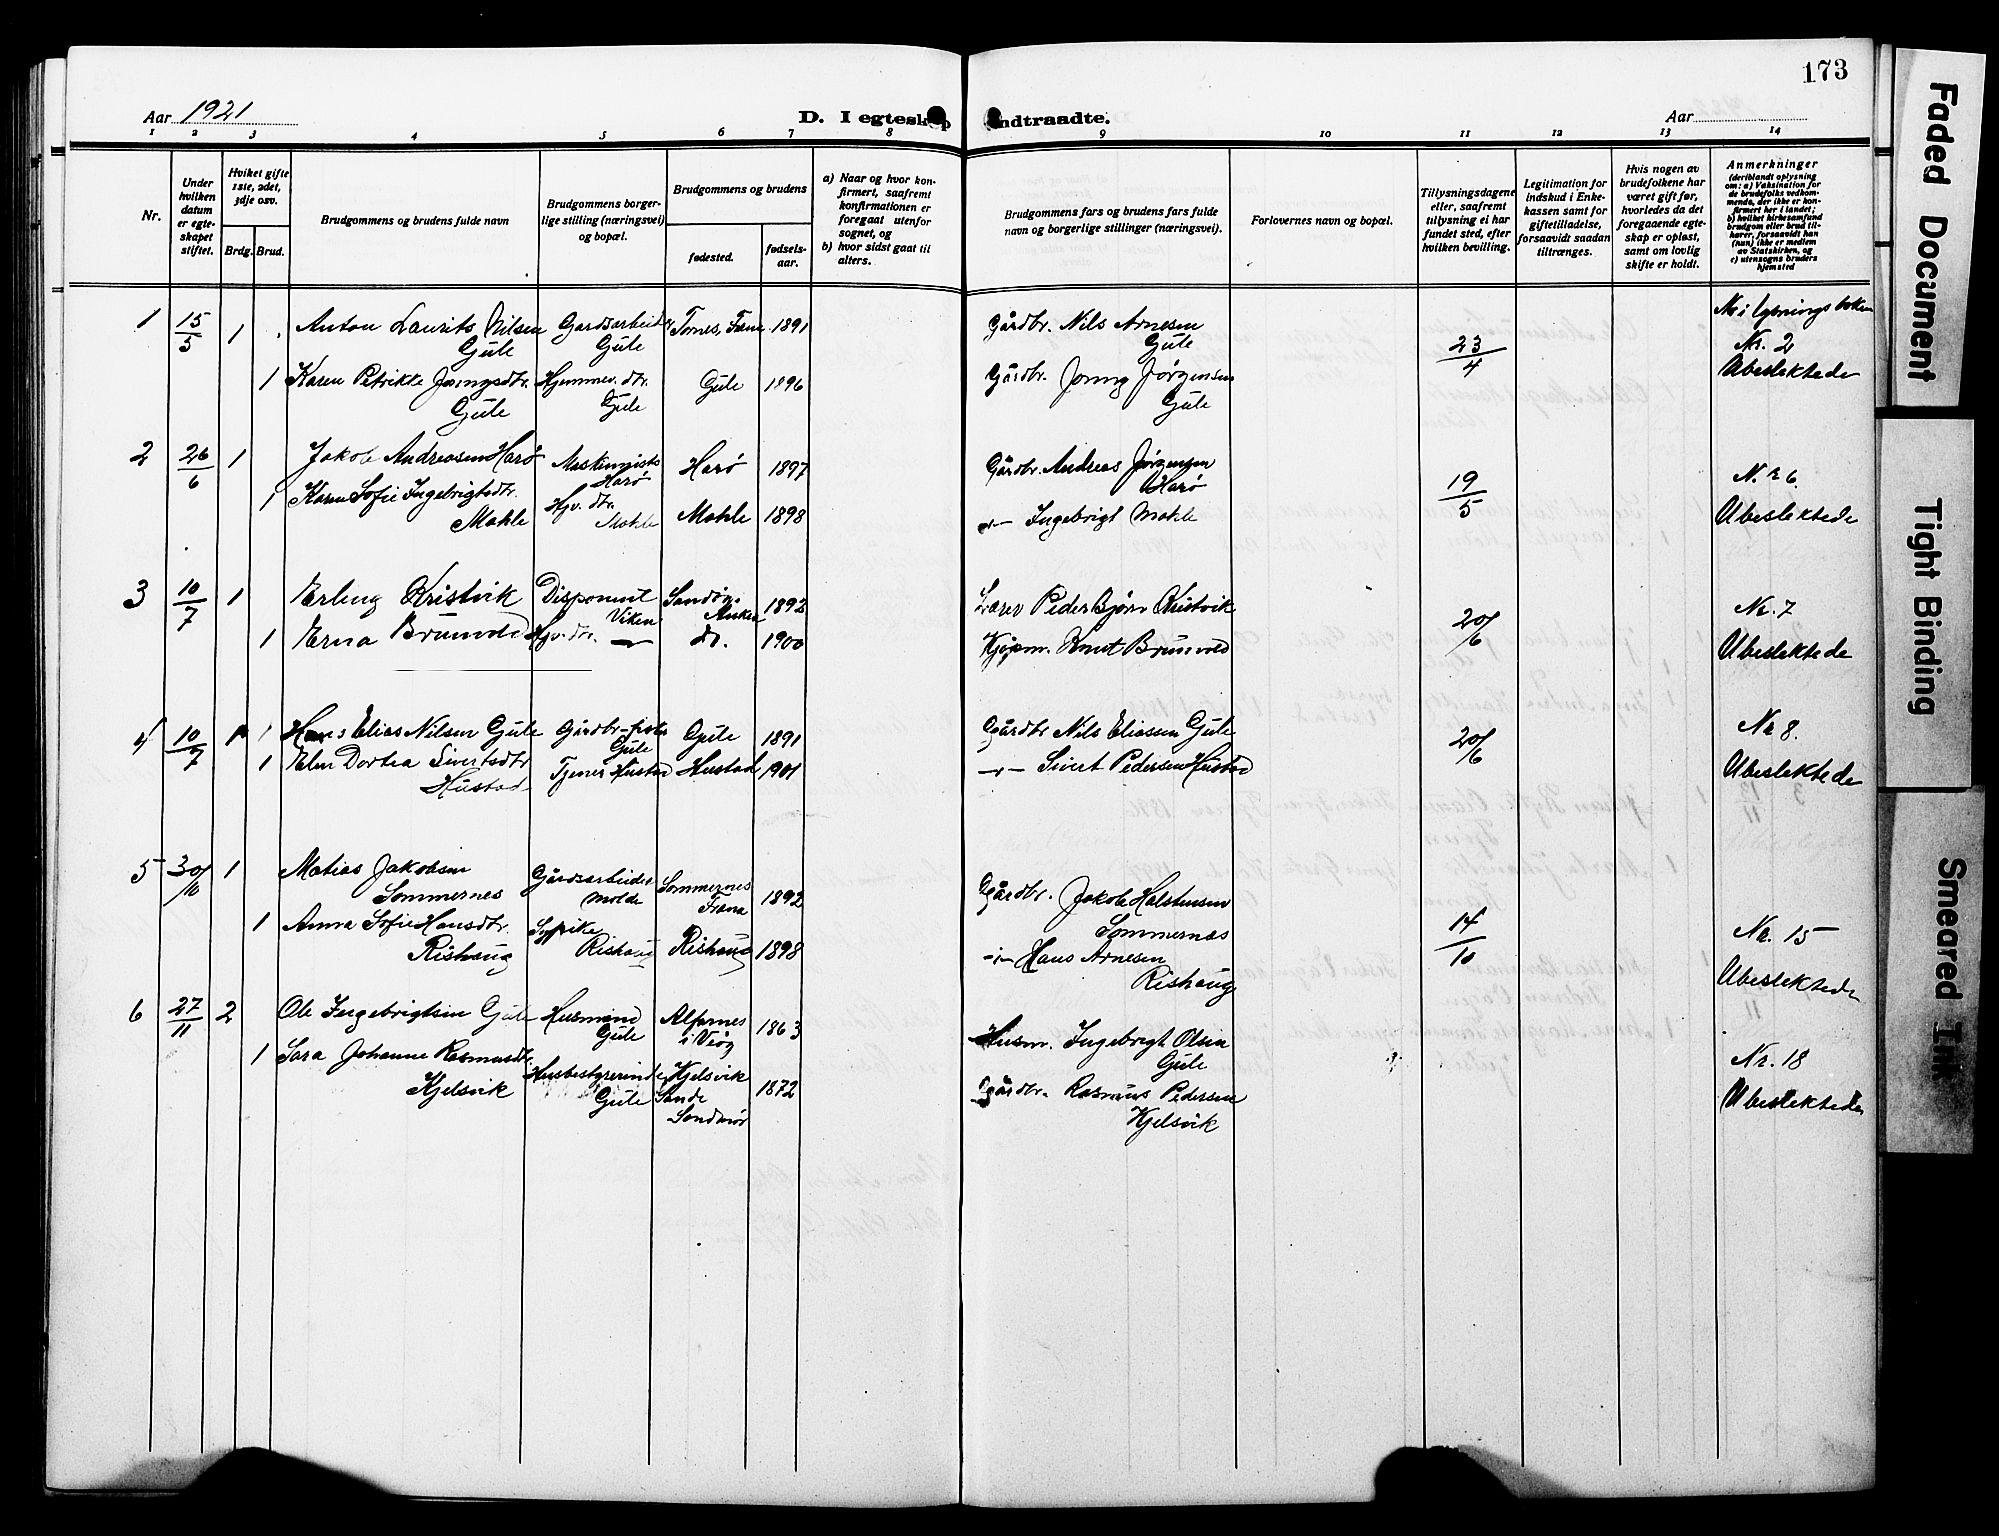 173
Aar 1921
D. I egteskap indtraadte.
Aar
1 2 3 4 5 6 7 8 9 10 11 12 13 14
Nr.
Under hvilken datum er egteskapet stiftet.
Hvilket gifte 1ste, 2det, 3dje osv.
Brdg. Brud.
Brudgommens og brudens fulde navn
Brudgommens borgerlige stilling (næringsvei) og bopæl.
Brudgommens og brudens
fødested.
fødselsaar.
a) Naar og hvor konfirmert, saafremt konfirmationen er foregaat utenfor sognet, og
b) hvor sidst gaat til alters.
Brudgommens fars og brudens fars fulde navn og borgerlige stillinger (næringsvei).
Forlovernes navn og bopæl.
Tillysningsdagene eller, saafremt tillysning ei har fundet sted, efter hvilken bevilling.
Legitimation for indskud i Enkekassen samt for giftetilladelse, forsaavidt saadan tiltrænges.
Hvis nogen av brudefolkene har været gift før, hvorledes da det foregaaende egteskap er opløst, samt om lovlig skifte er holdt.
Anmerkninger
(deriblandt oplysning om: a) Vaksination for de brudefolks vedkommende, der ikke er konfirmert her i landet; b) hvilket kirkesamfund brudgom eller brud tilhører, forsaavidt han (hun) ikke er medlem av Statskirken, og c) utensogns bruders hjemsted
1 15/5 1 Anton Laurits Nilsen Gardsarbeider Tornes, Fræna 1891 Gårdbr. Nils Arnesen 23/4 Nr i lysningsboken
Gule Gule Gule Nr. 2
1 Karen Petrikke Jonnysdtr. Hjemmev. dtr. Gule 1896 Gårdbr. Jonny Jørgensen Ubeslektede
Gule Gule Gule
2 26/6 1 Jakob Andreasen Harø Maskinist Harø 1897 Gårdbr. Andreas Jørgensen 19/5 Nr 6.
Harø Harø
1 Karen Sofie Ingebrigtsdtr. Hjv. dtr. Mohle 1898 -"- Ingebrigt Mohle Ubeslektede
Mohle Mohle
3 10/7 1 Erling Kristvik Disponent 1892 Lærer Peder Bjørn Kristvik 20/6 Nr. 7
Viken
1 Erna Brunvold Hjv. dtr. — do. 1900 Kjøpm. Knut Brunvold Ubeslektede
4 10/7 1 Hans Elias Nilsen Gule Gårdbr-fisker Gule 1891 Gårdbr Nils Eliassen Gule 20/6 Nr 8.
Gule
1 Elen Dortea Sivertsdtr Tjener Hustad Hustad 1901 -"- Sivert Pedersen Hustad Ubeslektede
Hustad
5 30/10 1 Matias Jakobsen Gårdsarbeider Sommernes 1892 Gårdbr. Jakob Halstensen 14/10 Nr. 15
Sommernes Molde Fræna Sommernes
1 Anna Sofie Hansdtr. Sypike Rishaug 1898 -"- Hans Arnesen Ubeslektede
Rishaug Rishaug Rishaug
6 27/11 2 Ole Ingebrigtsen Gule Husmand Alfarnes 1863 Husm. Ingebrigt Olsen Nr. 18
Gule i Veøy Gule
1 Sara Johanne Rasmusdtr. Husbestyrerinde Kjelsvik 1872 Gårdbr. Rasmus Pedersen Ubeslektede
Kjelsvik Gule Sande Kjelsvik
Søndmør
Faded Document
Tight Binding
Smeared Ink